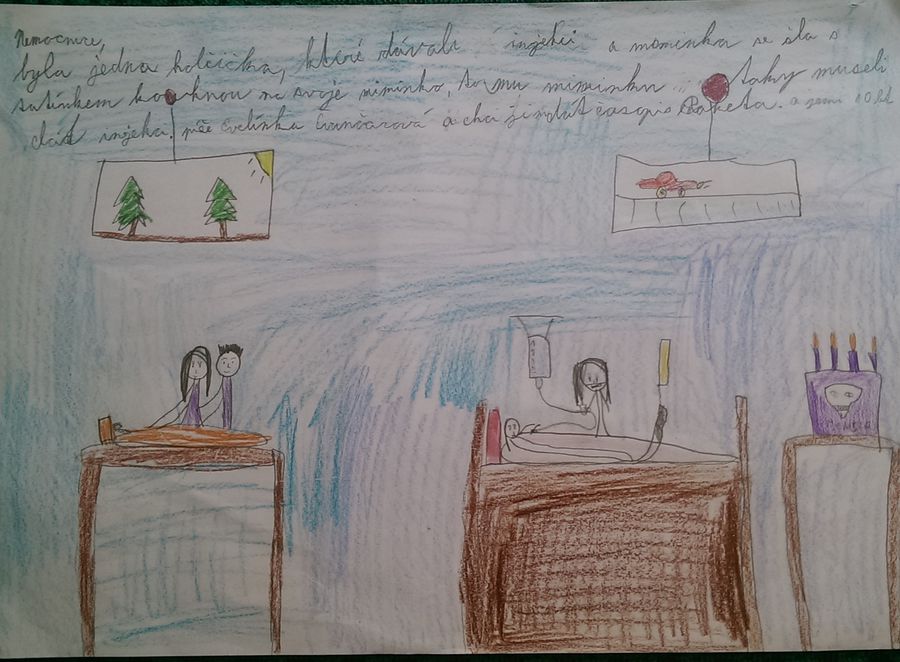 Nemocnice,
byla jedna holčička, které dávali injekci a maminka se šla s
tatínkem kouknou na svoje miminko, tomu miminku ... taky museli
dát injekci. píše Evelínka a chci vyhrát časopis Raketa. a jsem 10 let